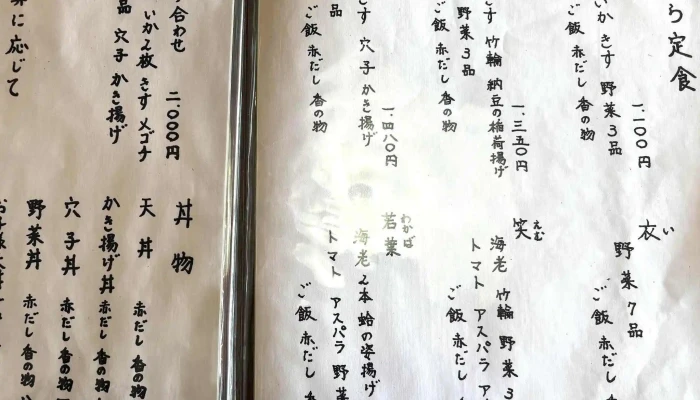 ら定食
いか きす 野菜3品
ご飯 赤だし 香の物
一、一〇〇円
きす 竹輪 納豆の稲荷揚げ
野菜3品
ご飯 赤だし 香の物
一、三五〇円
きす 穴子 かき揚げ
品
ご飯 赤だし 香の物
一、四八〇円
衣 い
野菜7品
ご飯 赤だし
笑 えむ
海老 竹輪 野菜3
トマト アスパラ
ご飯 赤だし
若葉 わかば
海老2本 蛤の姿揚げ
トマト アスパラ 野菜
ご飯 赤だし
り合わせ 二、〇〇〇円
いか2枚 きす メゴチ
品 穴子 かき揚げ
に応じて
丼物
天丼 赤だし 香の物
かき揚げ丼 赤だし 香の物
穴子丼 赤だし 香の物
野菜丼 赤だし 香の物